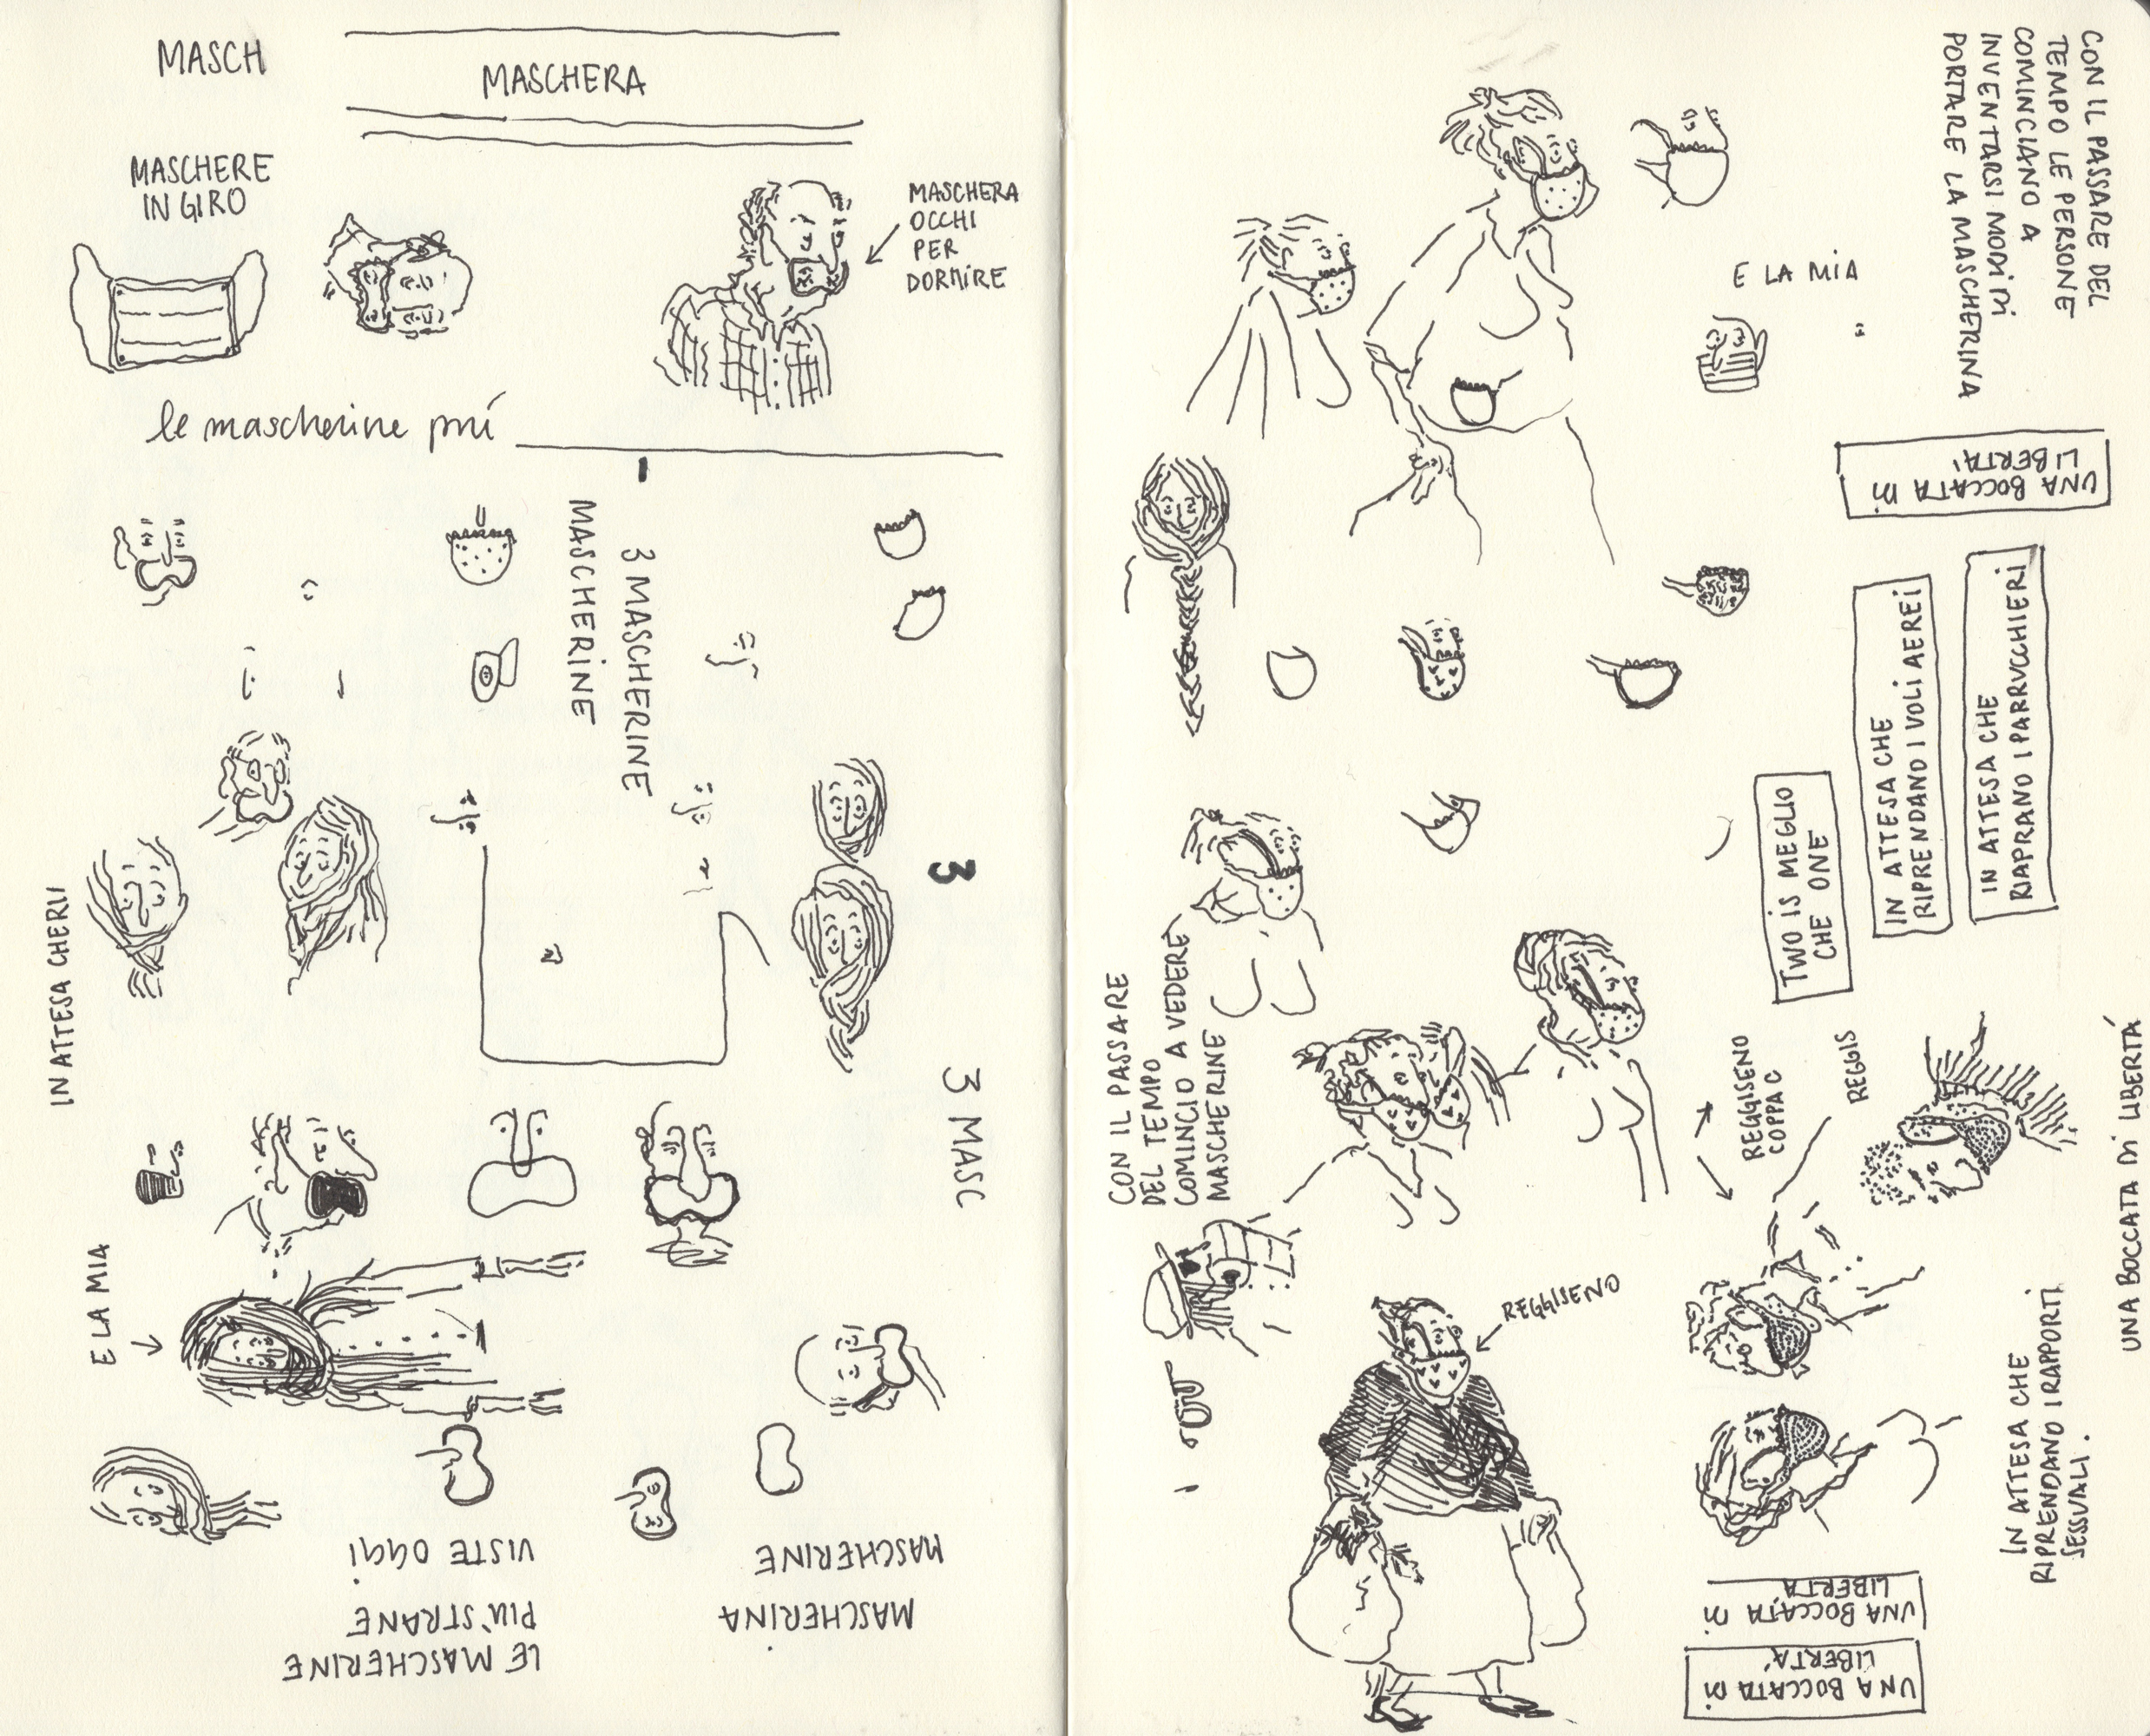 MASCH
MASCHERA
MASCHERE
IN GIRO
MASCHERA
OCCHI
PER
DORMIRE
le mascherine piú
3 MASCHERINE
MASCHERINE
IN ATTESA CHERI
3
3 MASC
E LA MIA
LE MASCHERINE
PIÙ STRANE
VISTE OGGI
MASCHERINA
MASCHERINE
CON IL PASSARE DEL
TEMPO LE PERSONE
COMINCIANO A
INVENTARSI MODI DI
PORTARE LA MASCHERINA
E LA MIA
UNA BOCCATA DI
LIBERTÀ
IN ATTESA CHE
RIAPRANO I PARUCCHIERI
IN ATTESA CHE
RIPRENDANO I VOLI AEREI
TWO IS MEGLIO
CHE ONE
CON IL PASSARE
DEL TEMPO
COMINCIO A VEDERE
MASCHERINE
REGGISENO
COPPA C
REGGIS
UNA BOCCATA DI LIBERTÁ
REGGISENO
IN ATTESA CHE
RIPRENDANO I RAPPORTI
SESSUALI.
UNA BOCCATA DI
LIBERTÀ
UNA BOCCATA DI
LIBERTÀ